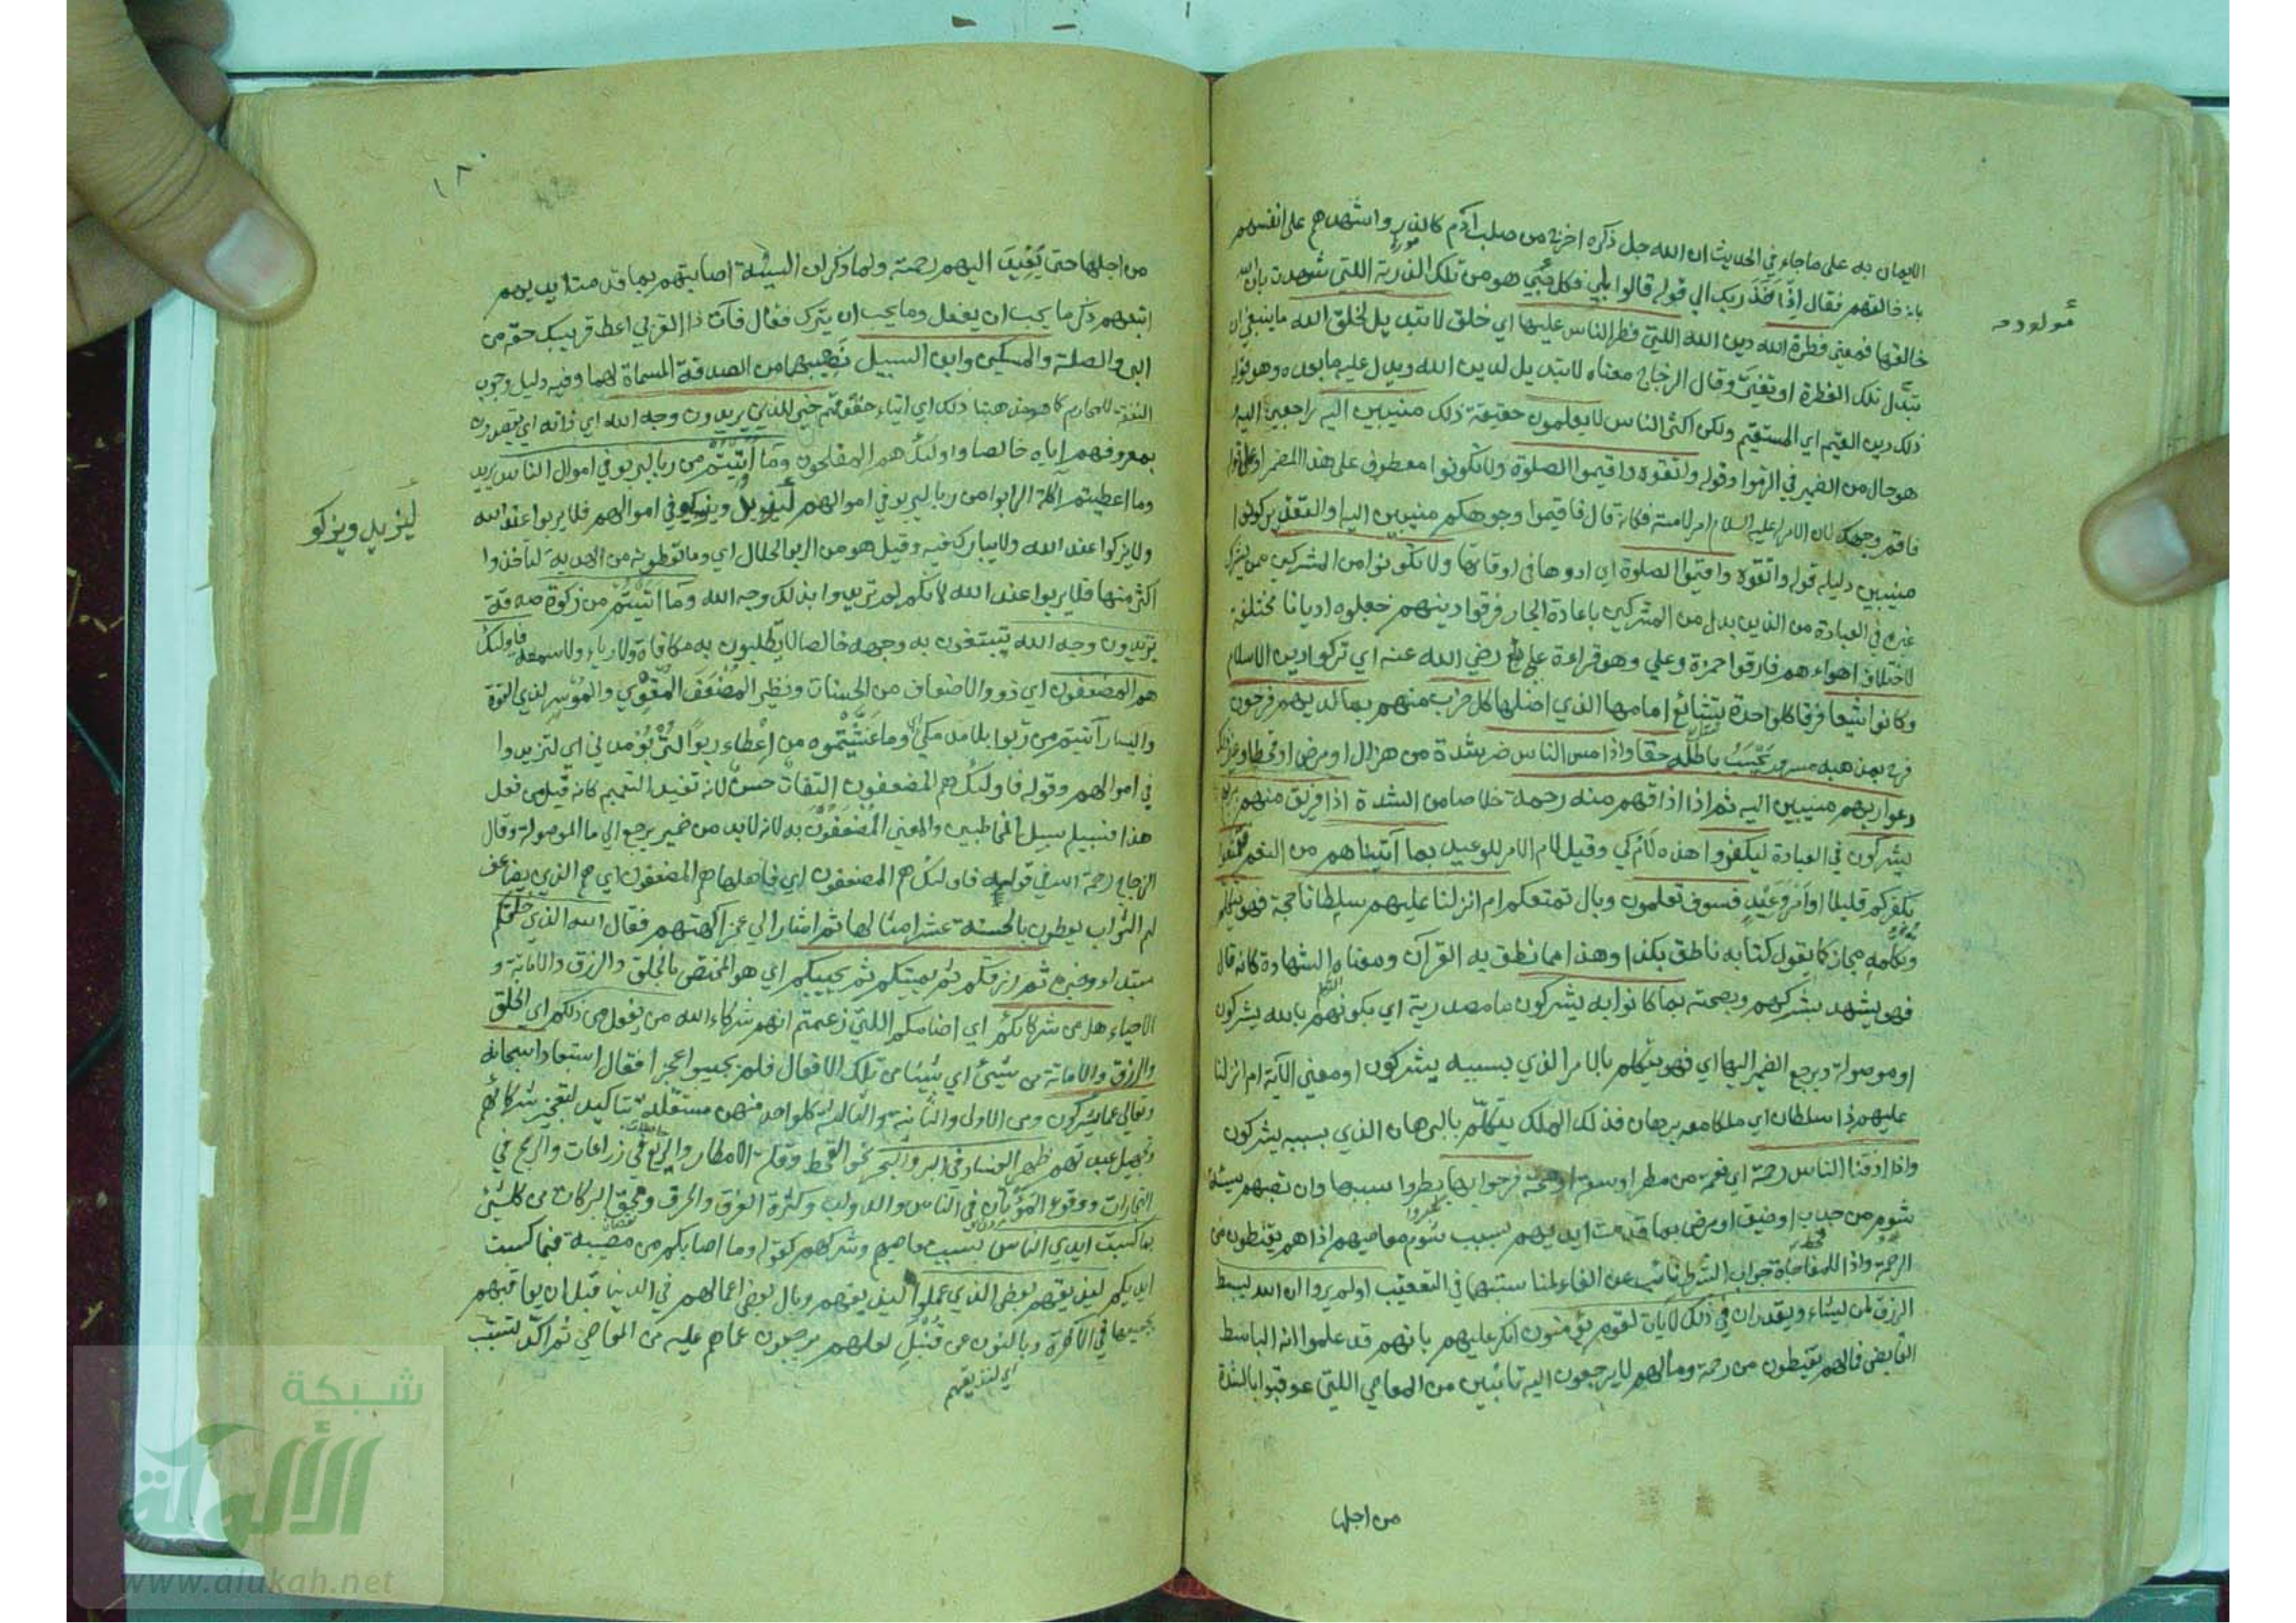 الايمان به على ما جاء في الحديث ان الله جل ذكره اخرج من صلب آدم كالذر واشهدهم على انفسهم
بانه خالقهم فقال واذ اخذ ربك الى قوله قالوا بلى فكل هو من تلك الذرية اللتي شهدت بان الله
مولود صح
خالقها فمعنى فطرة الله دين الله اللتي فطر الناس عليها اي خلق لا تبديل لخلق الله ما ينبغي ان
تبدل تلك الفطرة او تغير وقال الزجاج معناه لا تبديل لدين الله ويدل عليه ما بعده وهو قوله
ذلك الدين القيم اي المستقيم ولكن اكثر الناس لا يعلمون حقيقة ذلك منيبين اليه راجعين اليه
هو حال من الضمير في الزموا وقوله واتقوه واقيموا الصلوة ولا تكونوا معطوف على هذا المضمر او على قوله
فاقم وجهك لان الامر له عليه السلام امر لامته فكانه قال فاقيموا وجوهكم منيبين اليه والتقدير كونوا
منيبين دليله قوله واتقوه واقيموا الصلوة اي ادوها في اوقاتها ولا تكونوا من المشركين ممن يشرك
غيره في العبادة من الذين بدل من المشركين باعادة الجار فرقوا دينهم جعلوه اديانا مختلفة
لاختلاف اهواءهم فارقوا حمزة وعلي وهو قراءة علي رضي الله عنه اي تركوا دين الاسلام
وكانوا شيعا فرقا كل واحدة تشايع امامها الذي اضلها كل حزب منهم بما لديهم فرحون
فرح بمذهبه مسرور يحسب باطله حقا واذا مس الناس ضر شدة من هزال او مرض او قحط او غير ذلك
دعوا ربهم منيبين اليه ثم اذا اذاقهم منه رحمة خلاصا من الشدة اذا فريق منهم بربهم
يشركون في العبادة ليكفروا هذه لام كي وقيل لام الامر للوعيد بما آتيناهم من النعم فتمتعوا
بكفركم قليلا امر وعيد فسوف تعلمون وبال تمتعكم ام انزلنا عليهم سلطانا حجة فهو يتكلم
وتكلمه مجاز كما يقول كتابه ناطق بكذا وهذا مما نطق به القرآن ومعناه الشهادة كانه قال
فهو يشهد بشركهم وبصحته بما كانوا به يشركون ما مصدرية اي بكونهم بالله يشركون
او موصولة ويرجع الضمير اليها اي فهو يتكلم بالامر الذي بسببه يشركون او معنى الآية ام انزلنا
عليهم ذا سلطان اي ملكا معه برهان فذلك الملك يتكلم بالبرهان الذي بسببه يشركون
واذا اذقنا الناس رحمة اي نعمة من مطر او سعة او صحة فرحوا بها بطروا بسببها وان تصبهم سيئة
من جدب او ضيق او مرض بما قدمت ايديهم بسبب شوم معاصيهم اذا هم يقنطون من
الرحمة واذا للمفاجاة جواب الشرط نائب عن الفاء لمناسبتها في التعقيب اولم يروا ان الله يبسط
الرزق لمن يشاء ويقدر ان في ذلك لآيات لقوم يؤمنون انكر عليهم بانهم قد علموا انه الباسط
القابض فما لهم يقنطون من رحمة وما لهم لا يرجعون اليه تائبين من المعاصي اللتي عوقبوا بالشدة
من اجلها
١٨٠
من اجلها حتى يعيد اليهم رحمته ولما ذكر ان السيئة اصابتهم بما قدمت ايديهم
اتبعهم ذكر ما يجب ان يفعل وما يجب ان يترك فقال فآت ذا القربى اعط قريبك حقه من
البر والصلة والمسكين وابن السبيل نصيبهما من الصدقة المسماة لهما وفيه دليل وجوب
النفقة للمحارم كما هو مذهبنا ذلك اي ايتاء حقوقهم خير للذين يريدون وجه الله اي ذاته اي يقصدون
بمعروفهم اياه خالصا واولئك هم المفلحون وما آتيتم من ربا ليربو في اموال الناس يريد
وما اعطيتم اكلة الربوا من ربا ليربو في اموالهم ليزيد ويزكو في اموالهم فلا يربوا عند الله
ليزيد ويزكو
ولا يزكوا عند الله ولا يبارك فيه وقيل هو من الربو الحلال اي وما تعطونه من الهدية لتأخذوا
اكثر منها فلا يربوا عند الله لانكم لم تريدوا بذلك وجه الله وما آتيتم من زكوة صدقة
تريدون وجه الله تبتغون به وجهه خالصا لا تطلبون به مكافاة ولا رياء ولا سمعة فاولئك
هم المضعفون اي ذوو الاضعاف من الحسنات ونظير المضعف المقوي والموسر لذي القوة
واليسار آتيتم من ربوا بلا مد مكي اي وما غشيتموه من اعطاء ربوا لتربو مدني اي لتزيدوا
في اموالهم وقوله فاولئك هم المضعفون التفات حسن لانه تفيد التعميم كانه قيل من فعل
هذا فسبيله سبيل المخاطبين والمعنى المضعفون به لانه لا بد من ضمير يرجع الى ما الموصولة وقال
الزجاج رحمة الله في قوله فاولئك هم المضعفون اي فاهلها هم المضعفون اي هم الذين يضاعف
لهم الثواب يعطون بالحسنة عشر امثالها ثم اشار الى عجز آلهتهم فقال الله الذي خلقكم
مبتداء وخبره ثم رزقكم ثم يميتكم ثم يحييكم اي هو المختص بالخلق والرزق والاماتة و
الاحياء هل من شركائكم اي اصنامكم اللتي زعمتم انهم شركاء الله من يفعل من ذلكم اي الخلق
والرزق والاماتة من شيئ اي شيئا من تلك الافعال فلم يجيبوا عجزا فقال استبعادا سبحانه
وتعالى عما يشركون ومن الاولى والثانية والثالثة كل واحد منهن مستقلة بتاكيد لتعجيز شركائهم
وتجهيل عبدتهم ظهر الفساد في البر والبحر نحو القحط وقلة الامطار والريع في زراعات والربح في
التجارات ووقوع الموتان في الناس والدواب وكثرة الغرق والحرق ومحق البركات من كل شئ
بما كسبت ايدي الناس بسبب معاصيهم وشركهم كقوله وما اصابكم من مصيبة فبما كسبت
ايديكم ليذيقهم بعض الذي عملوا ليذيقهم وبال بعض اعمالهم في الدنيا قبل ان يعاقبهم
بجميعها في الآخرة وبالنون عن قنبل لعلهم يرجعون عما هم عليه من المعاصي ثم اكد لتسبب
اي لنذيقهم
شبكة
الألوكة
www.alukah.net